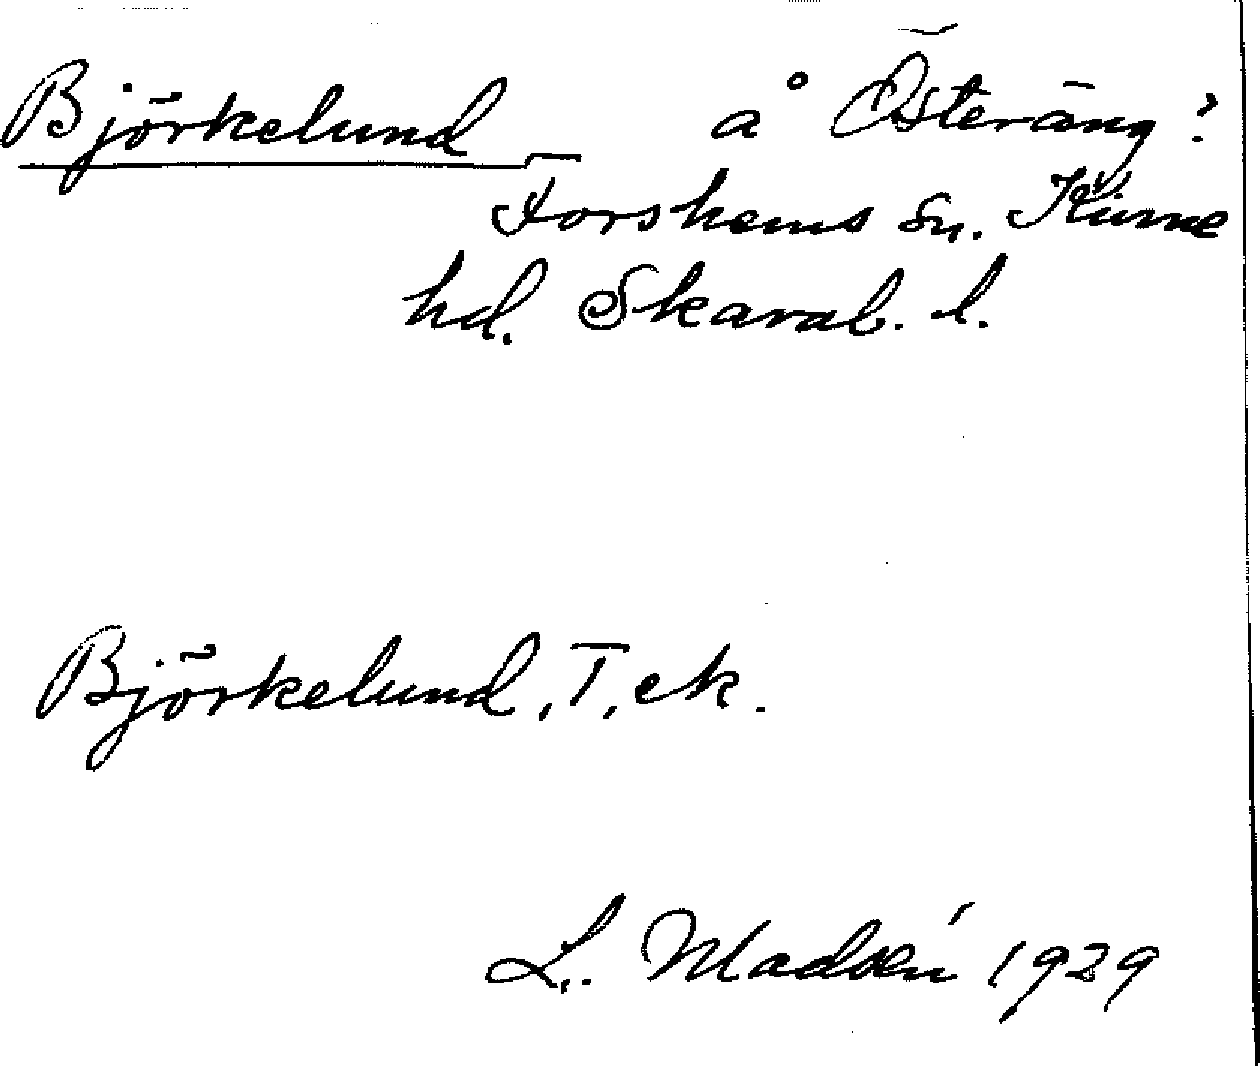 Björkelund å Österäng?
Forshems sn. Kinne
hd. Skarab. l.
Björkelund, T, ek.
L. Madsén 1929